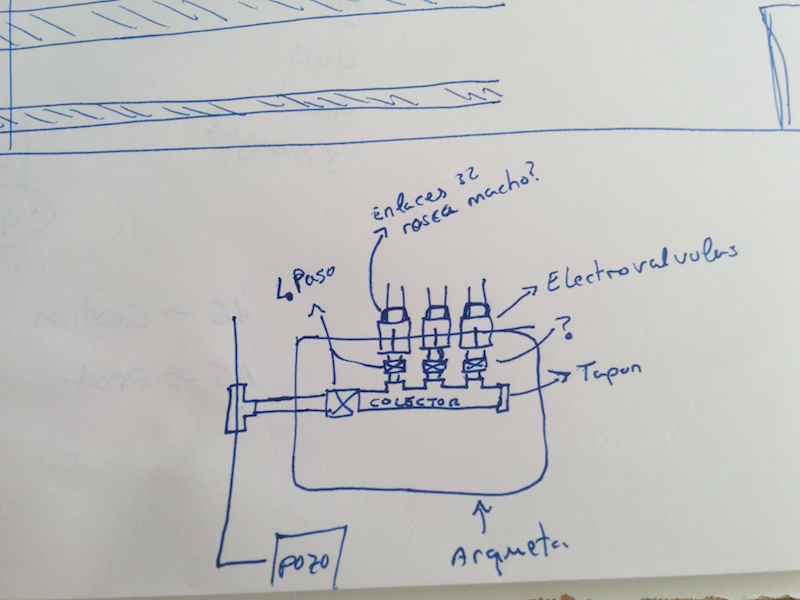 Enlaces 32
rosca macho?
Ll. Paso
Electrovalvulas
?
Tapon
COLECTOR
Arqueta
POZO